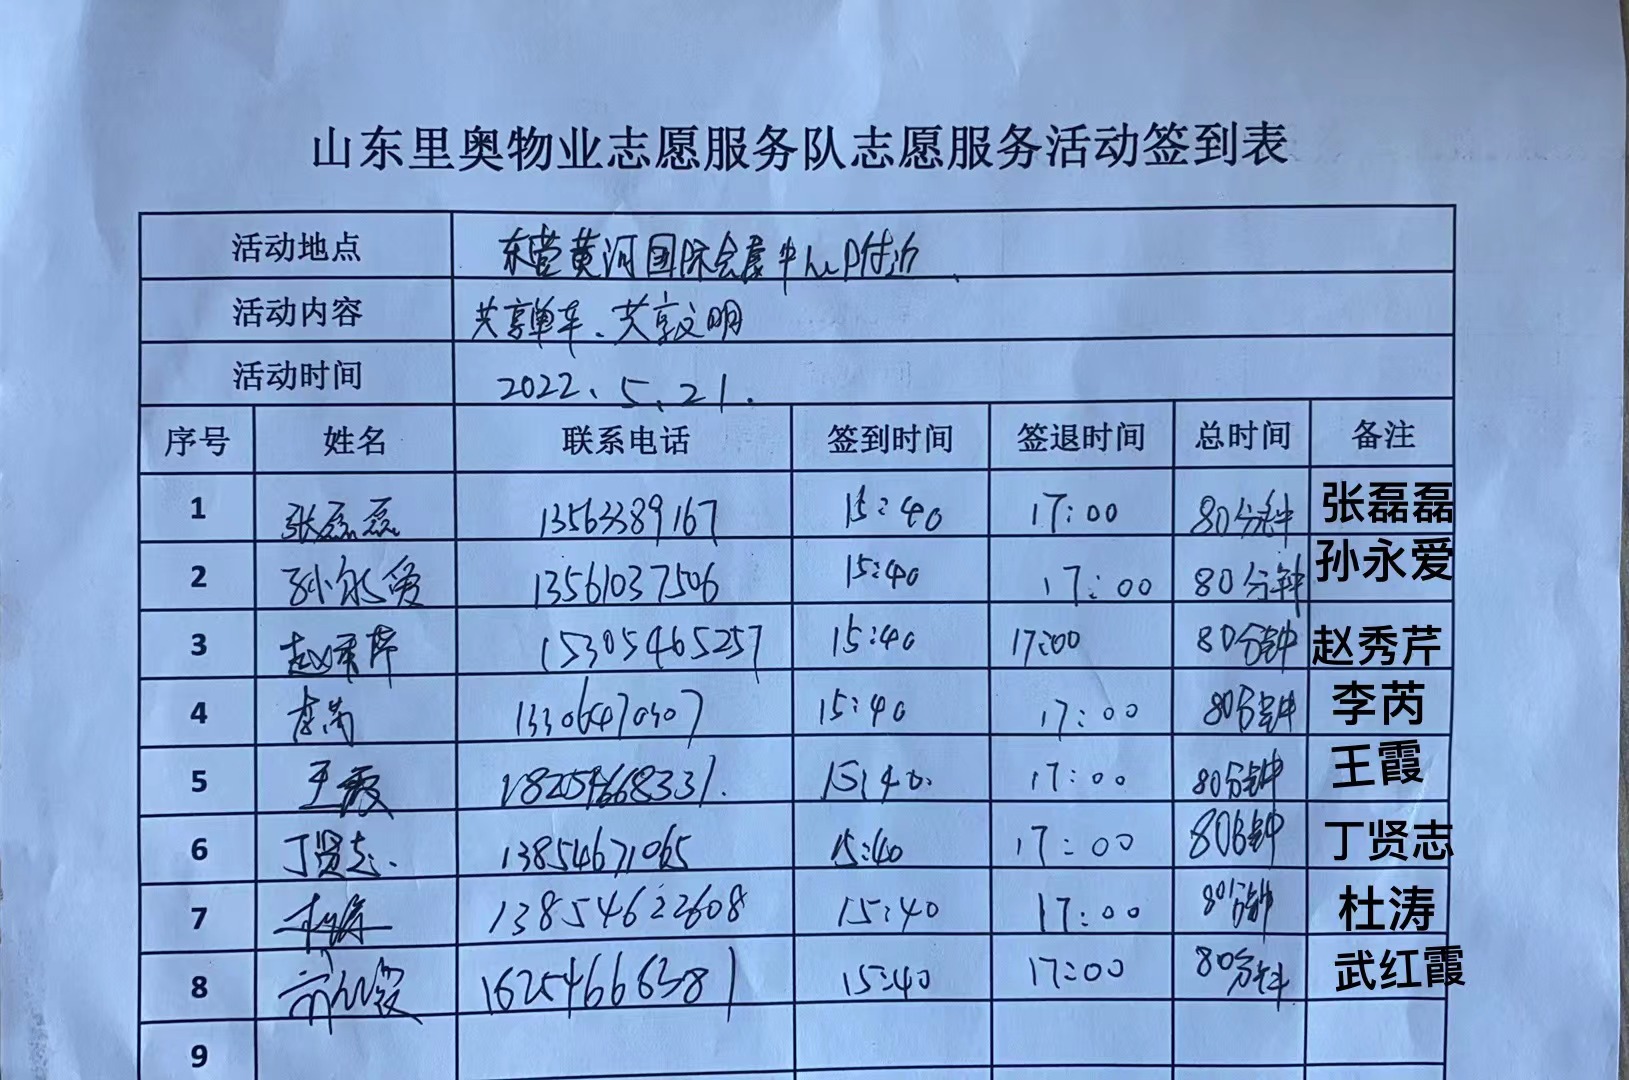 山东里奥物业志愿服务队志愿服务活动签到表
活动地点 东营黄河国际会展中心附近
活动内容 共享单车、共享文明
活动时间 2022、5、21.
序号 姓名 联系电话 签到时间 签退时间 总时间 备注
1 张磊磊 13563389167 15:40 17:00 80分钟 张磊磊
2 孙永爱 13561037506 15:40 17:00 80分钟 孙永爱
3 赵秀芹 15305465257 15:40 17:00 80分钟 赵秀芹
4 李芮 13306470307 15:40 17:00 80分钟 李芮
5 王霞 18254668331. 15:40. 17:00 80分钟 王霞
6 丁贤志. 13854671065 15:40 17:00 80分钟 丁贤志
7 杜涛 13854622608 15:40 17:00 80分钟 杜涛
8 武红霞 15:40 17:00 80分钟 武红霞
9